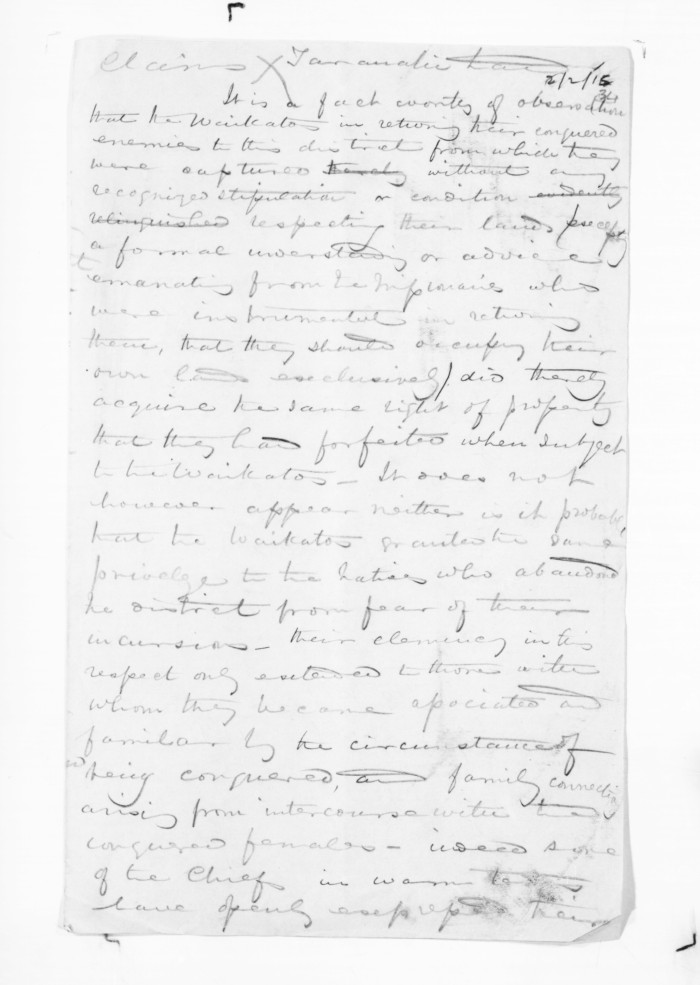 Claims X Taranaki Land
2/2/15
34
It is a fact worthy of observation
that the Waikatos in retiring their conquered
enemies to this district from which they
were captured thereby without any
recognized stipulation or condition evidently
relinquished respecting their lands (except
a formal understanding or advice
emanating from the Missionaries who
were instrumental in retiring
them, that they should occupy their
own lands exclusively) did thereby
acquire the same right of property
that they had forfeited when subject
to the Waikatos - It does not
however appear neither is it probable,
that the Waikatos granted the same
privilege to the Natives who abandoned
the district from fear of their
incursions - their clemency in this
respect only extended to those with
whom they became associated and
familiar by the circumstance of
being conquered, and family connection
arising from intercourse with the
conquered females - indeed some
of the Chiefs in warm terms
have openly expressed their